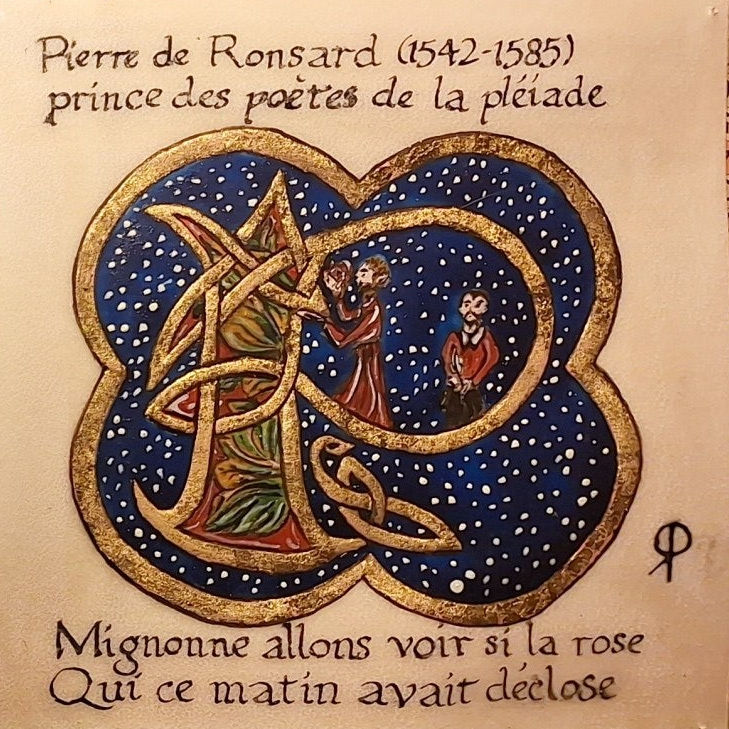 Pierre de Ronsard (1542-1585)
prince des poètes de la pléiade
Mignonne allons voir si la rose
Qui ce matin avait déclose